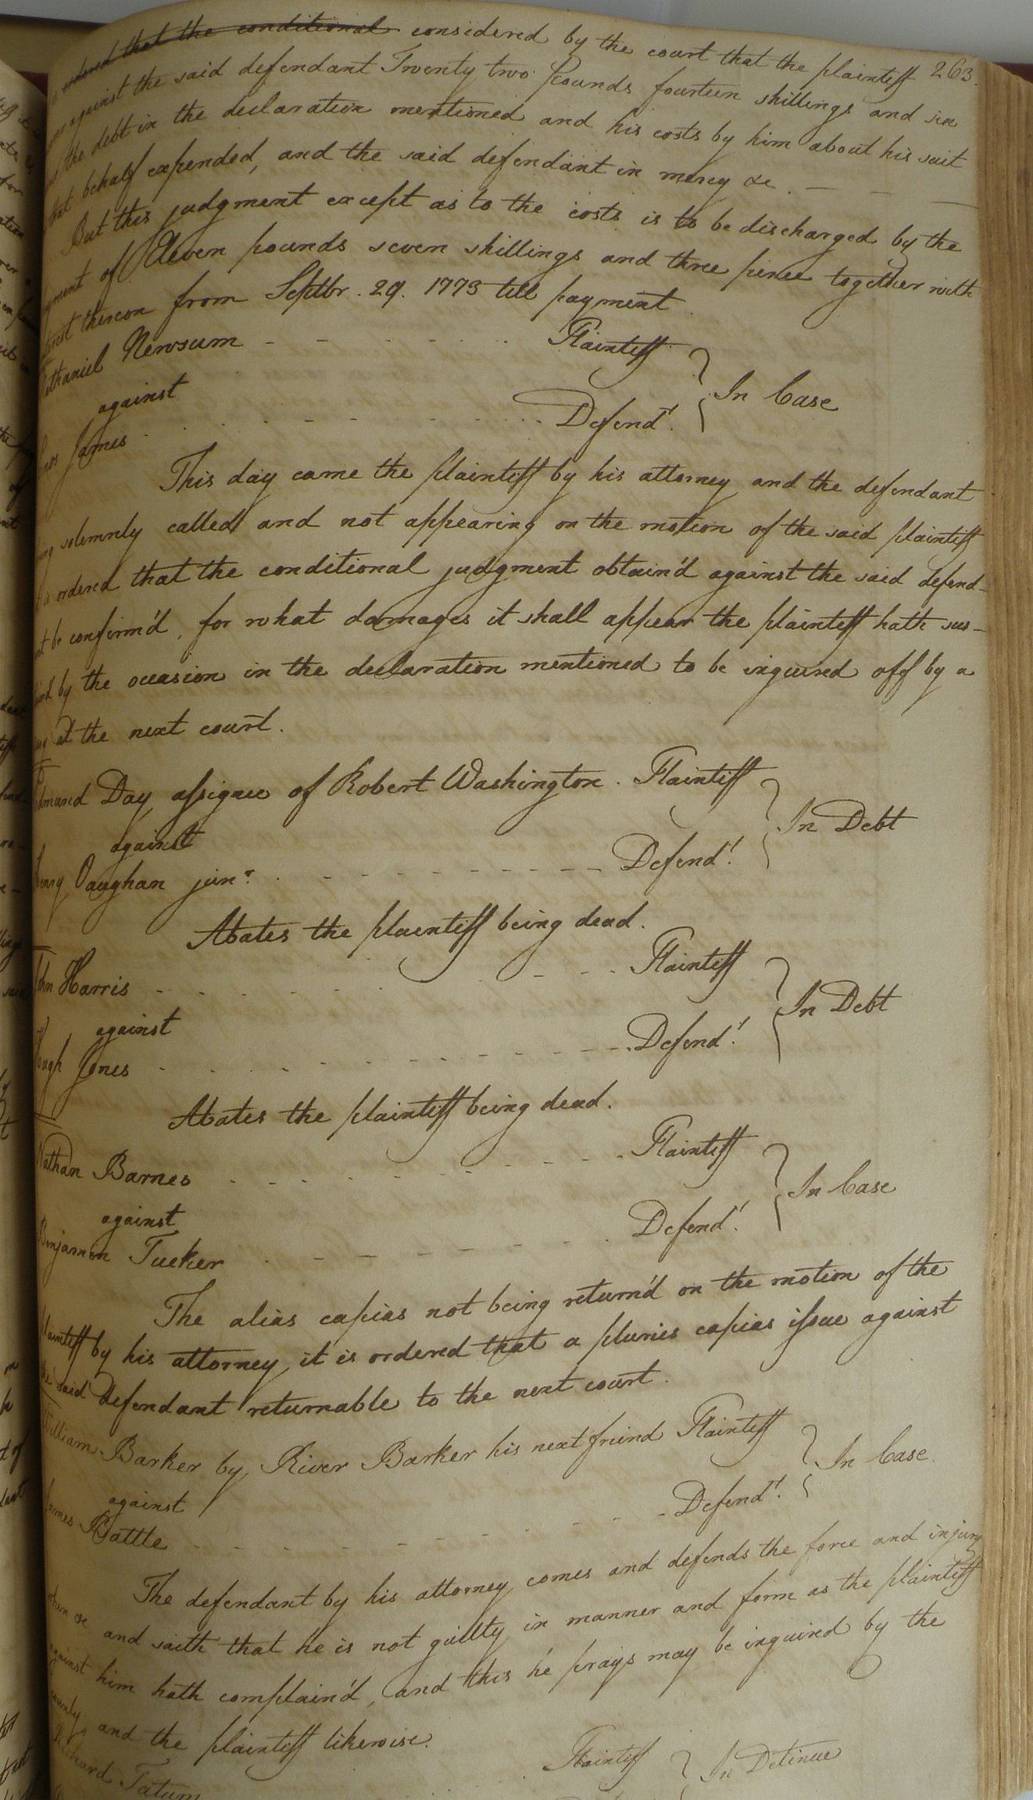 ordered that the conditional considered by the court that the plaintiff 263.
against the said defendant Twenty two Pounds fourteen shillings and six
the debt in the declaration mentioned and his costs by him about his suit
that behalf expended, and the said defendant in mercy &c.
But this judgment except as to the costs is to be discharged by the
payment of Eleven pounds seven shillings and three pence together with
thereon from Septbr. 29. 1773 till payment
Nathaniel Newsum Plaintiff
against In Case
James Defendt.
This day came the plaintiff by his attorney and the defendant
being solemnly called and not appearing on the motion of the said plaintiff
it is ordered that the conditional judgment obtain'd against the said defend-
ant be confirm'd, for what damages it shall appear the plaintiff hath sus-
tained by the occasion in the declaration mentioned to be inquired off by a
jury at the next court.
Edmund Day assignee of Robert Washington. Plaintiff
against In Debt
Henry Vaughan junr. Defendt.
Abates the plaintiff being dead.
John Harris Plaintiff
against In Debt
Hugh Jones Defendt.
Abates the plaintiff being dead.
Nathan Barnes Plaintiff
against In Case
Benjamin Tucker Defendt.
The alias capias not being return'd on the motion of the
plaintiff by his attorney, it is ordered that a pluries capias issue against
the said defendant returnable to the next court.
William Barker by River Barker his next friend Plaintiff
against In Case
James Battle Defendt.
The defendant by his attorney comes and defends the force and injury
when &c and saith that he is not guilty in manner and form as the plaintiff
against him hath complain'd, and this he prays may be inquired by the
county and the plaintiff likewise.
Richard Tatum Plaintiff In Detinue